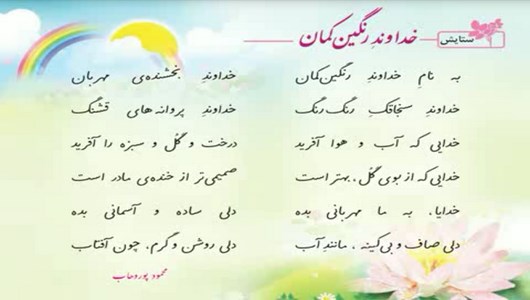 ستایش
خداوندِ رنگین‌کمان
به نامِ خداوندِ رنگین‌کمان
خداوندِ بخشنده‌ی مهربان
خداوندِ سنجاقکِ رنگ رنگ
خداوندِ پروانه‌های قشنگ
خدایی که آب و هوا آفرید
درخت و گل و سبزه را آفرید
خدایی که از بوی گل، بهتر است
صمیمی‌تر از خنده‌ی مادر است
خدایا، به ما مهربانی بده
دلی ساده و آسمانی بده
دلی صاف و بی‌کینه، مانندِ آب
دلی روشن و گرم، چون آفتاب
محمود پوروهاب